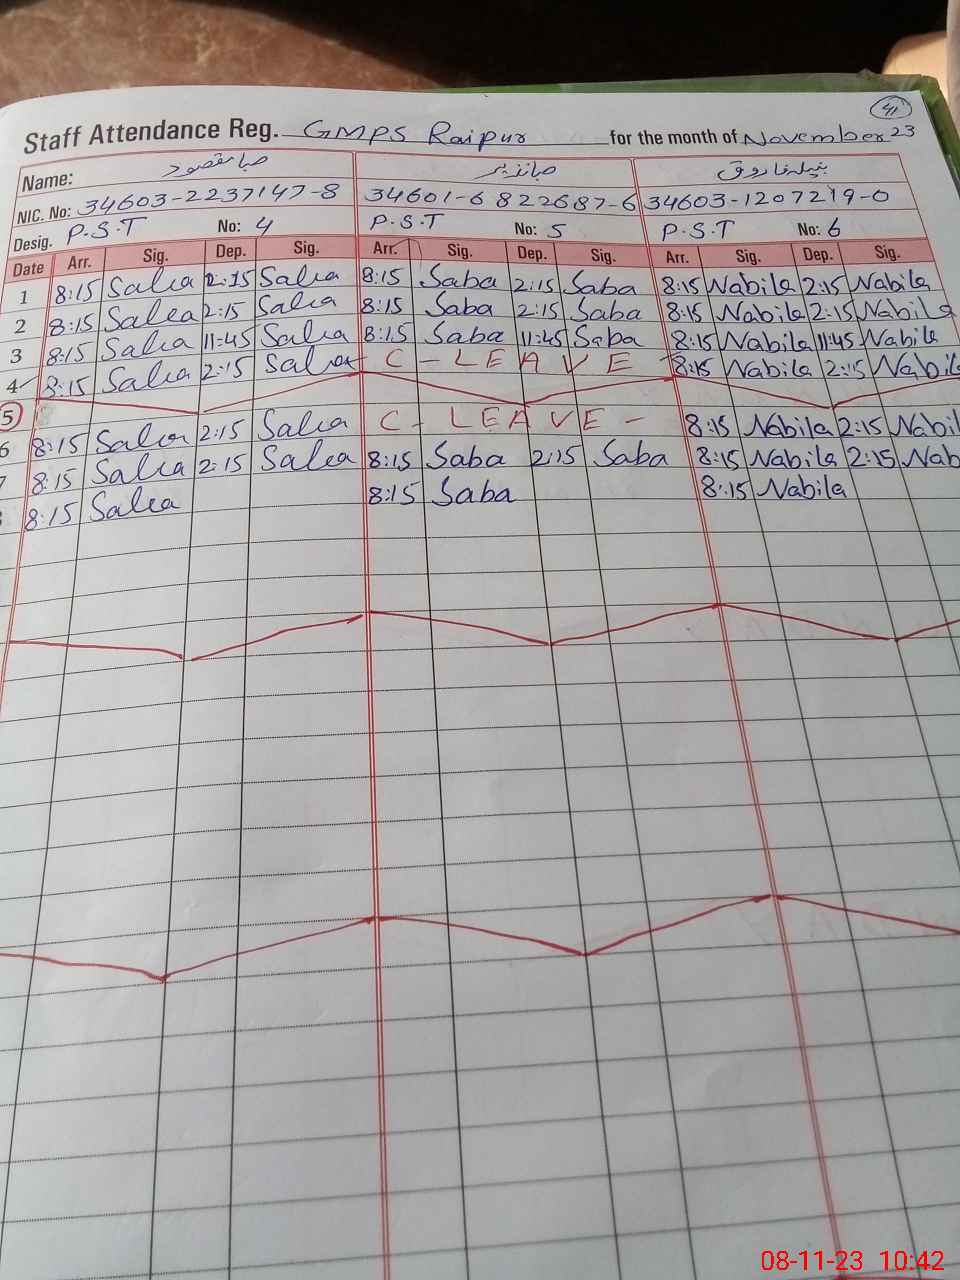 41
Staff Attendance Reg. GMPS Raipur for the month of November 23
Name: صبا مقصود صبا نذیر نبیلہ فاروق
NIC. No: 34603-2237147-8 34601-6822687-6 34603-1207219-0
Desig. P.S.T No: 4 P.S.T No: 5 P.S.T No: 6
Date Arr. Sig. Dep. Sig. Arr. Sig. Dep. Sig. Arr. Sig. Dep. Sig.
1 8:15 Saba 2:15 Saba 8:15 Saba 2:15 Saba 8:15 Nabila 2:15 Nabila
2 8:15 Saba 2:15 Saba 8:15 Saba 2:15 Saba 8:15 Nabila 2:15 Nabila
3 8:15 Saba 11:45 Saba 8:15 Saba 11:45 Saba 8:15 Nabila 11:45 Nabila
4 8:15 Saba 2:15 Saba C-LEAVE 8:15 Nabila 2:15 Nabil
5
6 8:15 Saba 2:15 Saba C-LEAVE- 8:15 Nabila 2:15 Nabil
7 8:15 Saba 2:15 Saba 8:15 Saba 2:15 Saba 8:15 Nabila 2:15 Nab
8:15 Saba 8:15 Saba 8:15 Nabila
08-11-23 10:42